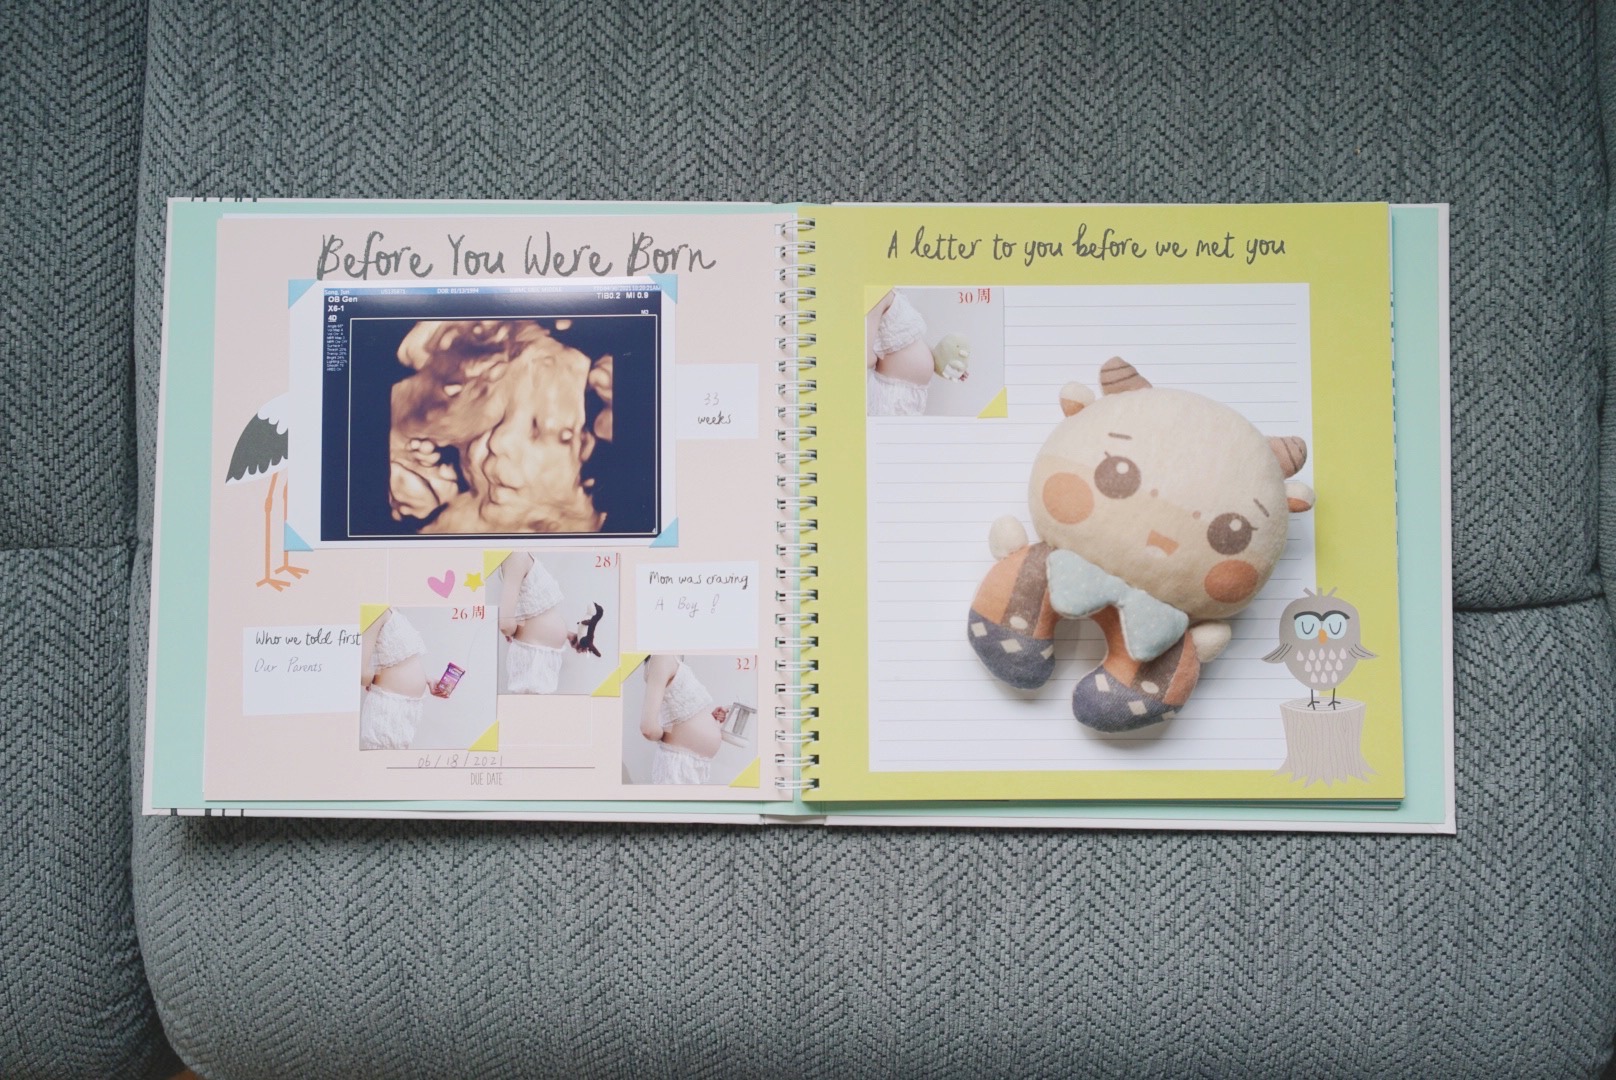 Before You Were Born
OB Gen
X6-1
4D
TIB0.2 MI 0.9
M3
33
weeks
28
Mom was craving
A Boy !
26 周
Who we told first
Our Parents
32
06/18/2021
DUE DATE
A letter to you before we met you
30 周